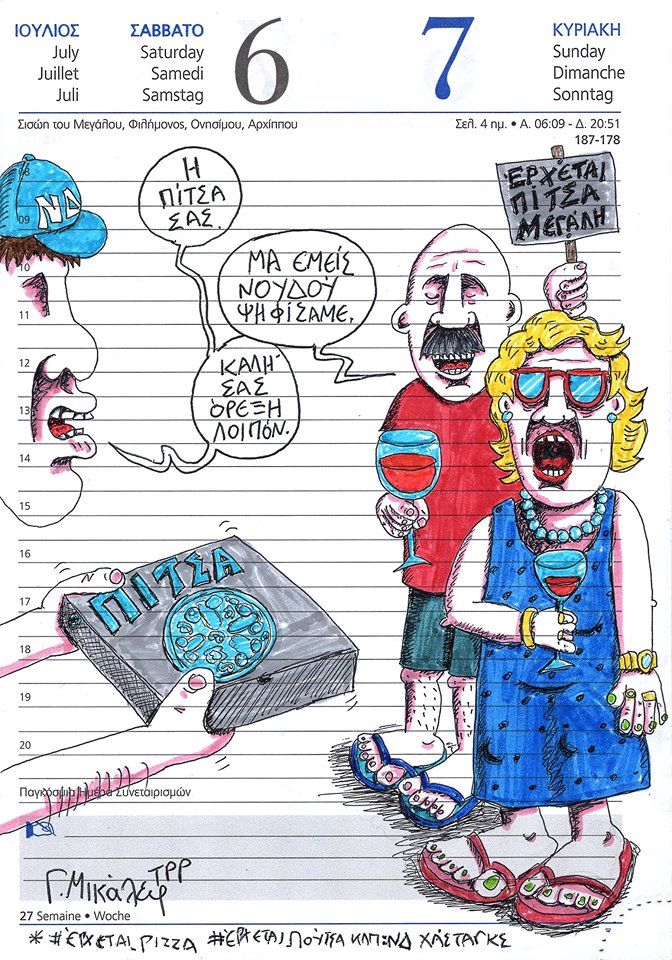 ΙΟΥΛΙΟΣ
July
Juillet
Juli
ΣΑΒΒΑΤΟ
Saturday
Samedi
Samstag
6
7
ΚΥΡΙΑΚΗ
Sunday
Dimanche
Sonntag
Σισώη του Μεγάλου, Φιλήμονος, Ονησίμου, Αρχίππου
Σελ. 4 ημ. • Α. 06:09 - Δ. 20:51
187-178
ΝΔ
Η
ΠΙΤΣΑ
ΣΑΣ.
ΜΑ ΕΜΕΙΣ
ΝΟΥΔΟΥ
ΨΗΦΙΣΑΜΕ.
ΚΑΛΗ
ΣΑΣ
ΟΡΕΞΗ
ΛΟΙΠΟΝ.
ΕΡΧΕΤΑΙ
ΠΙΤΣΑ
ΜΕΓΑΛΗ
08
09
10
11
12
13
14
15
16
17
18
19
20
ΠΙΤΣΑ
Παγκόσμια Ημέρα Συνεταιρισμών
Γ. Μικάλεφ
ΤΡΡ
27 Semaine • Woche
* #ΕΡΧΕΤΑΙ PIZZA #ΕΡΧΕΤΑΙ ΠΟΥΤΣΑ ΧΑΣΤΑΓΚΣ